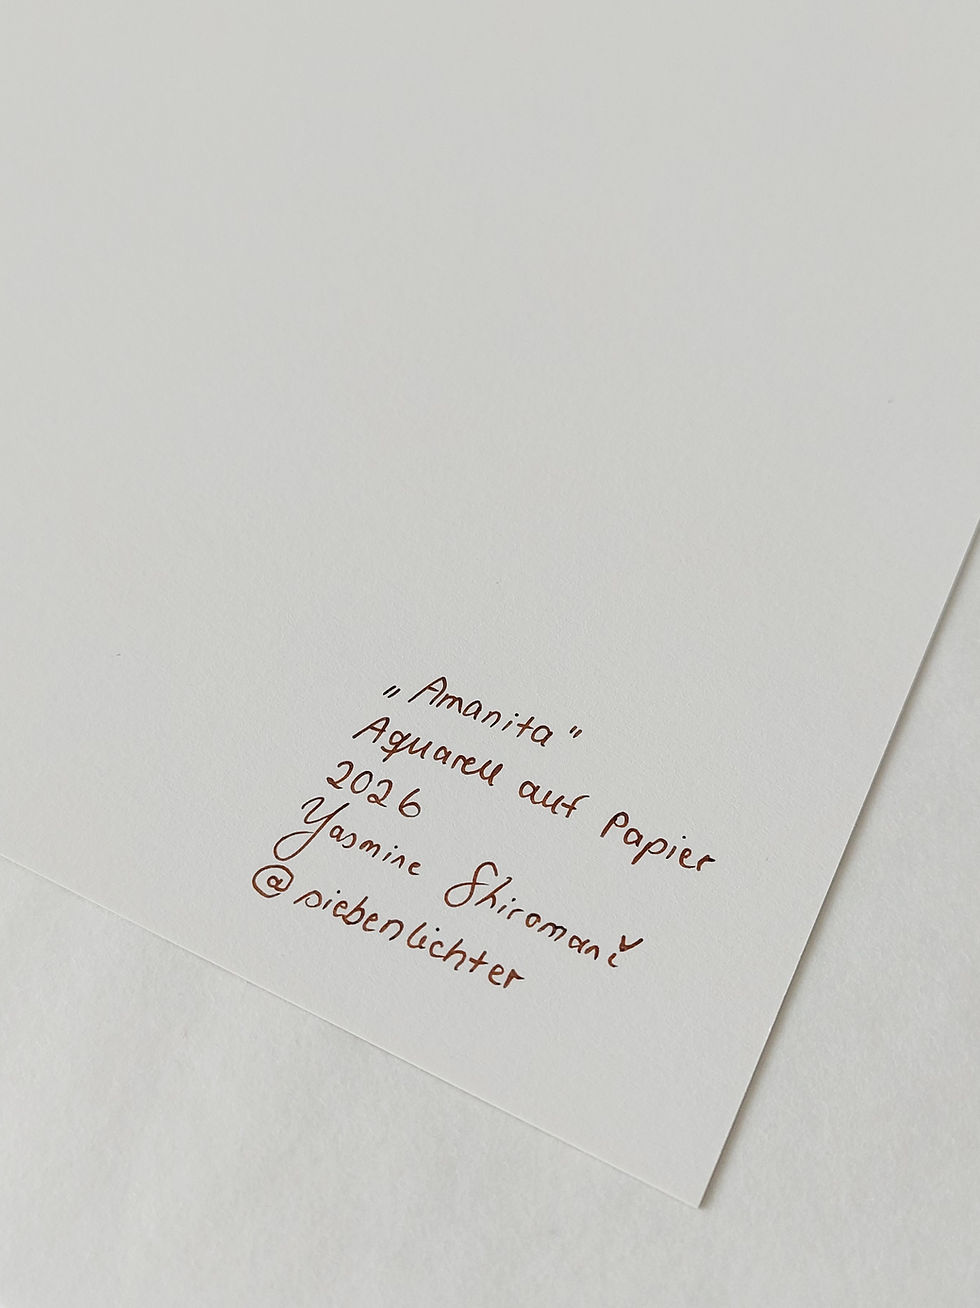 „Amanita"
Aquarell auf Papier
2026
Yasmine Shiromani
@siebenlichter